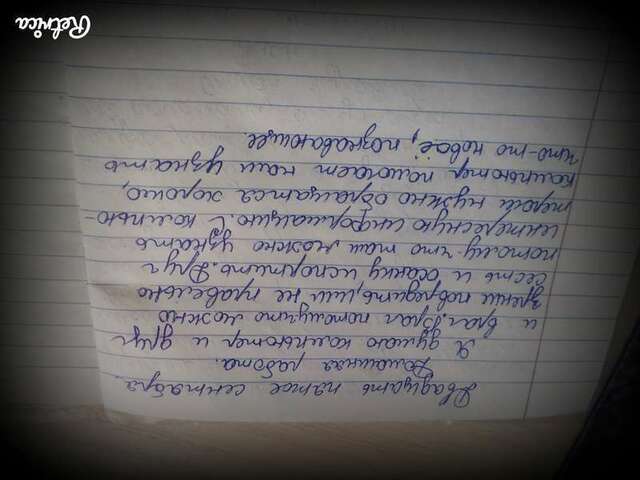 Двадцать пятое сентября.
Домашняя работа.
Я думаю компьютер и друг
и враг. Враг потому что можно
зрение повредить, или не правельно
сесть и осанку испортить. Друг
потому-что там можно узнать
интересную информацию. С компью-
тером нужно обращатся хорошо,
компьютер помогает нам узнать
что-то новое, познавающее.
Retrica